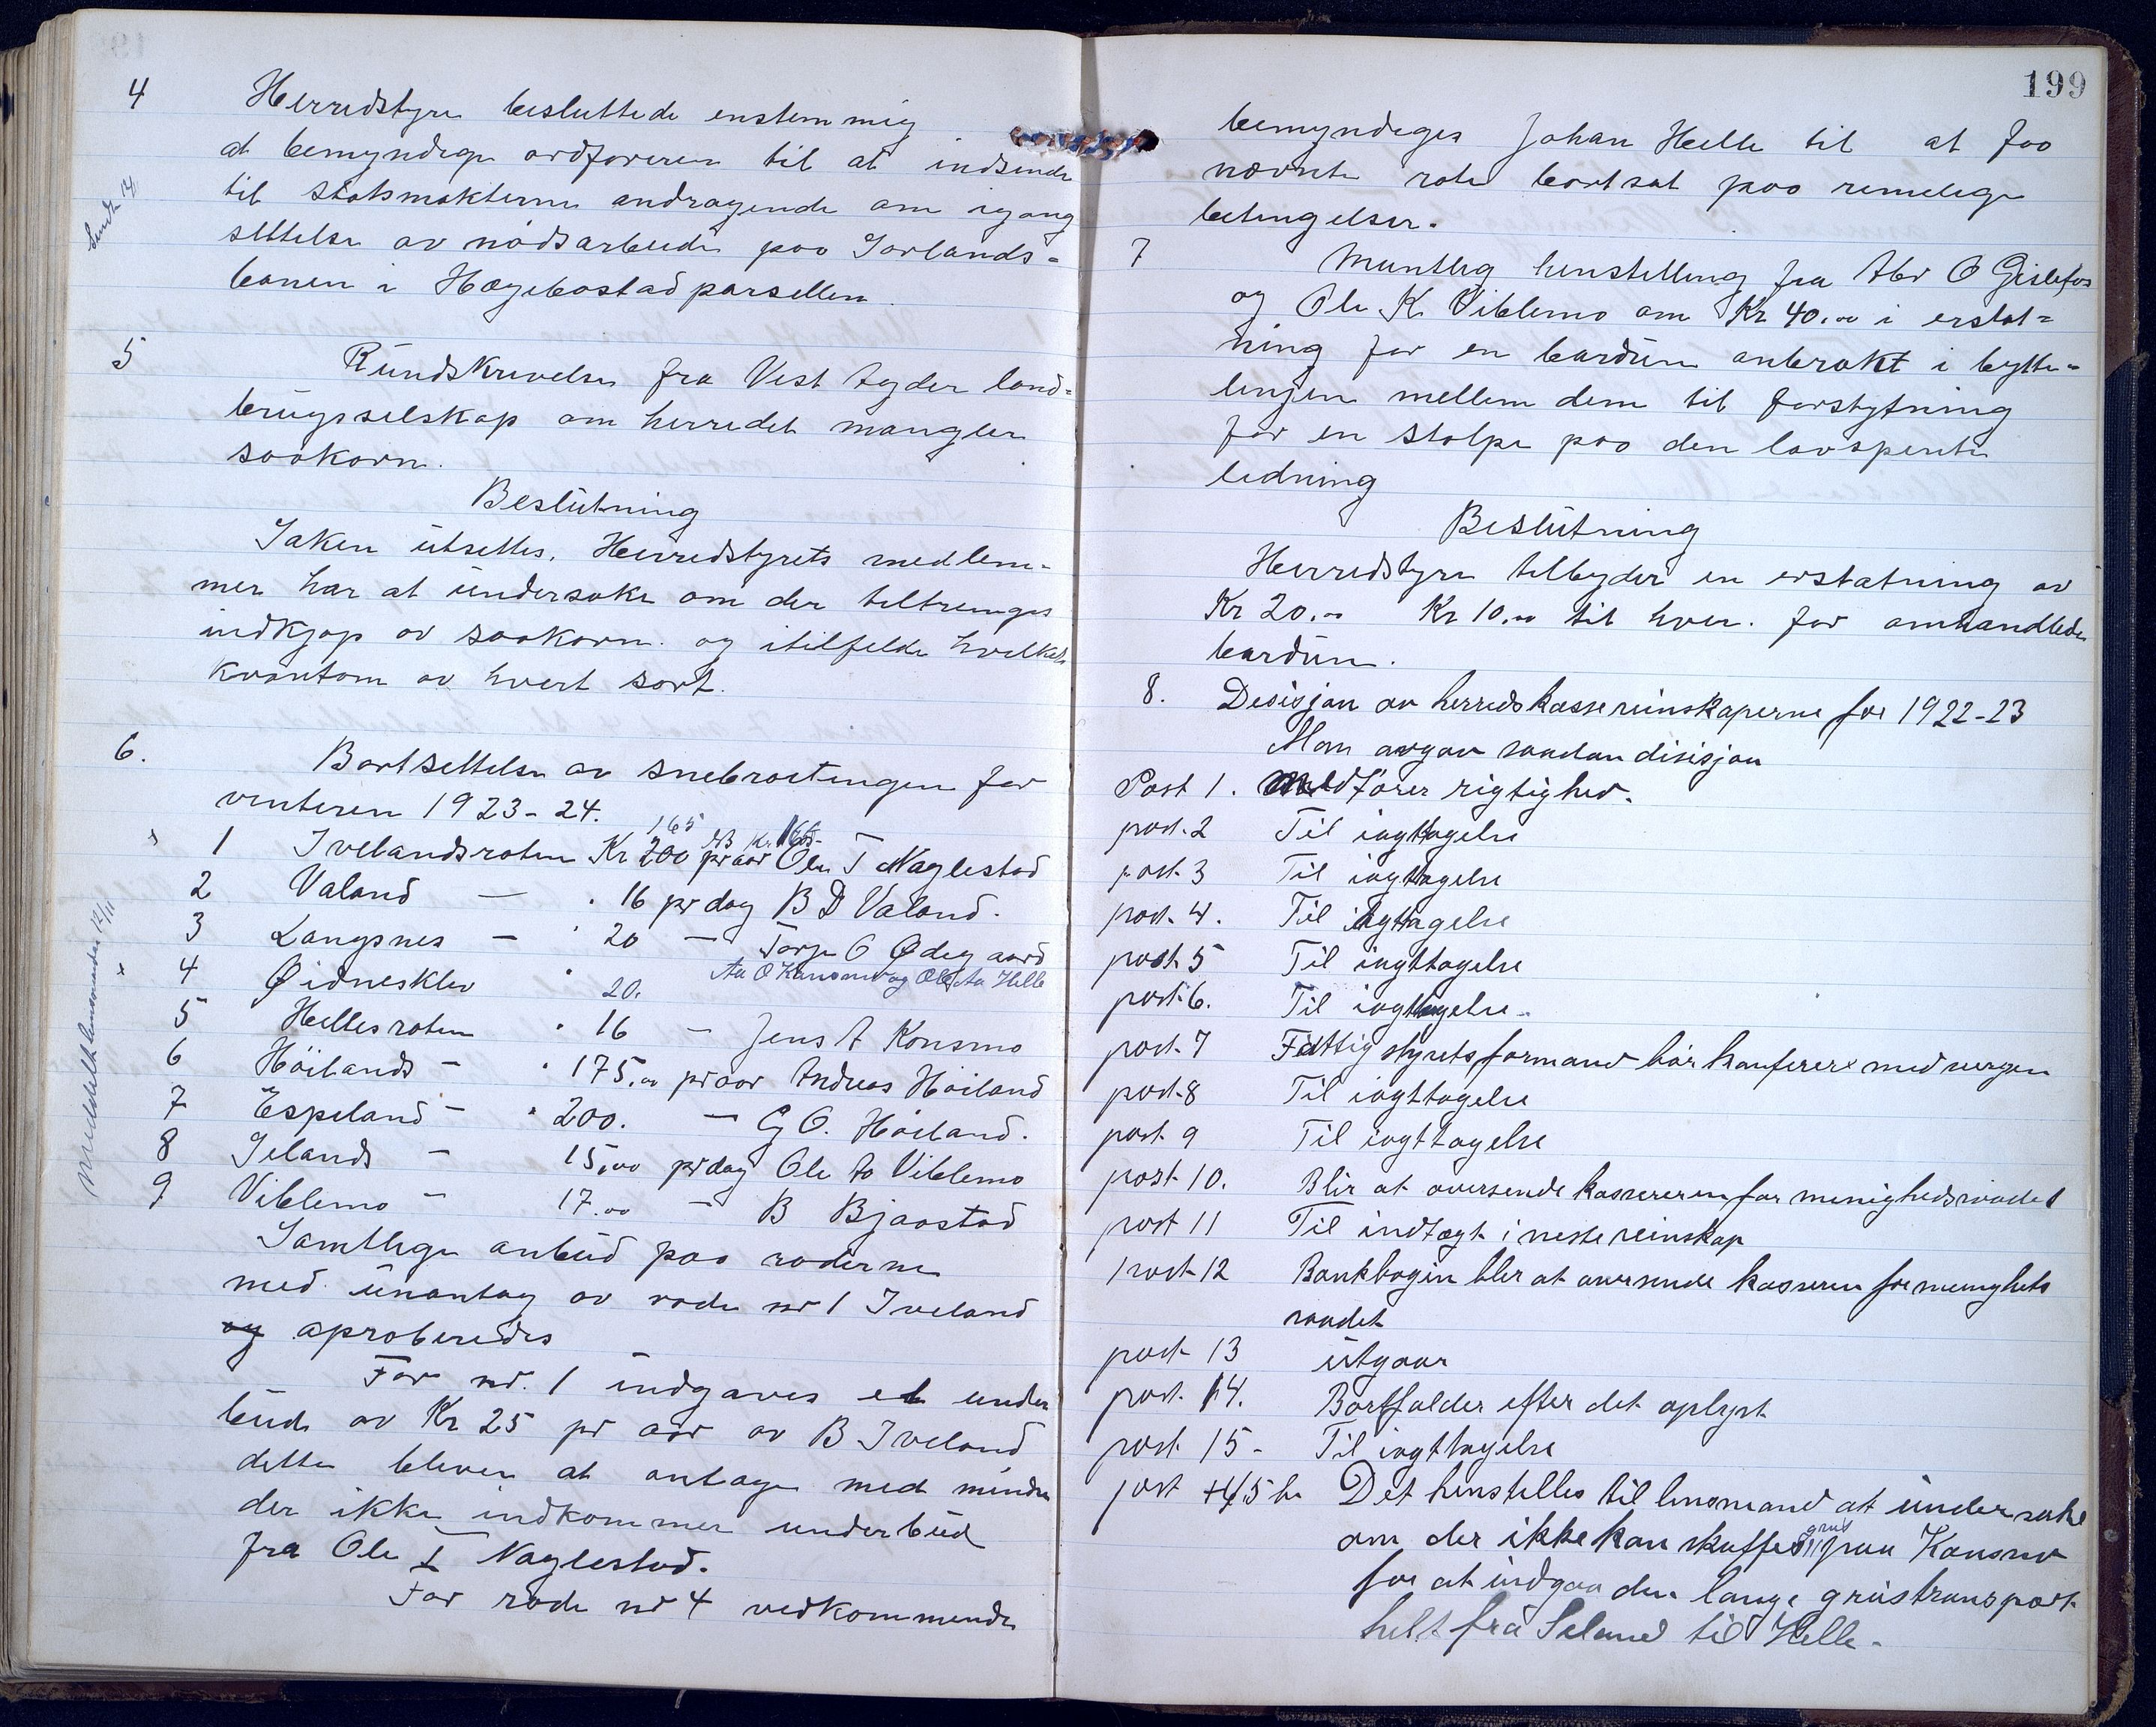 4 Herredstyre besluttede enstemmig
at bemyndige ordføreren til at indsende
til statsmakterne andragende om igang
settelse av nødsarbeide paa Sørlands-
banen i Hægebostadparsellen.
Sendt
5 Rundskrivelse fra Vest Agder land-
brugsselskap om herredet mangler
saakorn.
Beslutning
Saken utsettes. Herredstyrets medlem-
mer har at undersøke om der tiltrenges
indkjøp av saakorn. og itilfelde hvilket
kvantom av hvert sort.
6. Bortsettelse av snebrøitingen for
vinteren 1923-24.
165 NB Kr. 165-
1 Ivelandsroten Kr 200 pr aar Ole T Naglestad
2 Valand — " 16 pr dag B D Valand.
3 Langsnes — " 20 — Torje O Ødegaard
4 Øidnesklev " 20. Aa O Konsmo og Ole Aa Helle
5 Hellesroten " 16 — Jens A Konsmo
6 Høilands — " 175.00 pr aar Andreas Høiland
7 Espeland — " 200. — G O. Høiland.
8 Selands — 15,00 pr dag Ole Aa Viblemo
9 Viblemo — 17.00 — B Bjaastad
Meddelt vedkommende 12/11
Samtlige anbud paa roderne
med unantag av rode nr 1 Iveland
og aproberedes
For nr. 1 indgaves et under
bud av Kr 25 pr aar av B Iveland
dette bliver at antage med mindre
der ikke indkommer underbud
fra Ole T Naglestad.
For rode nr 4 vedkommende
199
bemyndiges Johan Helle til at faa
nævnte rote bortsat paa rimelige
betingelser.
7 Muntlig henstelling fra Abr O Gislefos
og Ole K Viblemo om Kr 40.00 i erstat-
ning for en bardun anbrakt i bytte-
linjen mellem dem til forstytning
for en stolpe paa den lavspente
ledning
Beslutning
Herredstyre tilbyder en erstatning av
Kr 20.00 Kr 10.00 til hver. for omhandlede
bardun.
8. Desisjon av herredskassereinskaperne for 1922-23
Man avgav saadan disisjon
Post 1. Medfører rigtighed.
post. 2 Til iagttagelse
post. 3 Til iagttagelse
post. 4. Til iagttagelse
post 5 Til iagttagelse
post. 6. Til iagttagelse.
post. 7 Fattigstyrets formand bør konferere med vergen
post. 8 Til iagttagelse
post. 9 Til iagttagelse
post 10. Blir at oversende kassereren for menighedsraadet
post 11 Til indtægt i neste reinskap
post 12 Bankbogen blir at oversende kasseren for menighets
raadet
post 13 utgaar
post. 14. Bortfalder efter det oplyst
post 15- Til iagttagelse
post 45 h Det henstilles til lensmand at undersøke
om der ikke kan skaffes grus paa Konsmo
for at undgaa den lange grustransport
helt fra Seland til Helle.